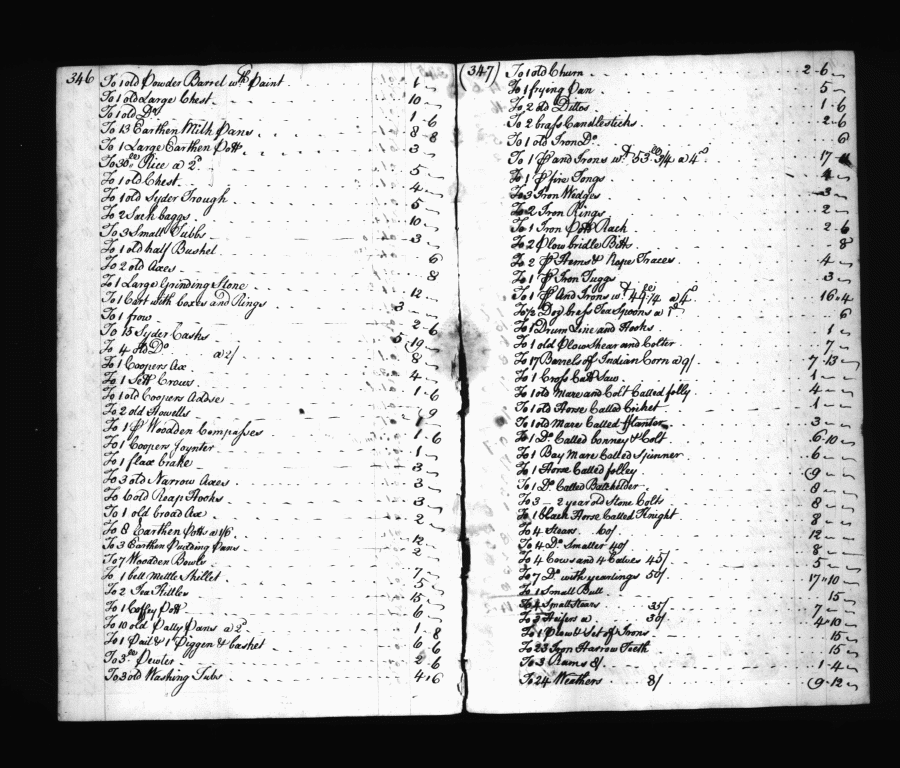 346
To 1 old Powder Barrel wth Paint 1 ~
To 1 old Large Chest 10 ~
To 1 old Do 1 - 6
To 13 Earthen Milk Pans 8 - 8
To 1 Large Earthen Pott 3 ~
To 30 lb Rice a 2d 5 ~
To 1 old Chest 4 ~
To 1 old Syder Trough 5 ~
To 2 Sack baggs 10 ~
To 3 Small Tubbs 3 ~
To 1 old half Bushel 6
To 2 old Axes 8
To 1 Large Grinding Stone 12 ~
To 1 Cart with boxes and Rings 3 ~
To 1 frow 2 - 6
To 15 Syder Casks 5 19 ~
To 4 Do a 2/ 8 ~
To 1 Coopers Ax 4 ~
To 1 Sett Crows 1 - 6
To 1 old Coopers Addse 9
To 2 old Howells 1 - 6
To 1 Pr Wooden Compasses 1 ~
To 1 Coopers Joynter 3 ~
To 1 flax brake 3 ~
To 3 old Narrow Axes 3 ~
To 6 old Reap Hooks 2 ~
To 1 old broad Ax
To 8 Earthen Potts a 1/6 12 ~
To 3 Earthen Pudding Pans 2
To 7 Wooden Bowls 7 ~
To 1 bell Mettle Skillet 5 ~
To 2 Tea Kittles 15 ~
To 1 Coffey Pott 6 ~
To 10 old Patty Pans a 2d 1 - 8
To 1 Pail & 1 Piggen & Casket 6 - 6
To 3 lb Pewter 2 - 6
To 3 old Washing Tubs 4 - 6
(347)
To 1 old Churn 2 - 6 ~
To 1 frying Pan 5 ~
To 2 old Dittos 1 - 6
To 2 brass Candlesticks 2 - 6
To 1 old Iron Do 6
To 1 Pr and Irons wt 53 lb 3/4 a 4d 17 -
To 1 Pr fire Tongs 4 ~
To 3 Iron Wedges 3 ~
To 2 Iron Rings 2 ~
To 1 Iron Pott Rack 2 - 6
To 2 Plow bridle Bitts 8
To 2 Pr Hems & Rope Traces 4 ~
To 1 Pr Iron Tuggs 3 ~
To 1 Pr And Irons wt 44 lb 1/4 a 4d 16 - 4
To 1/2 Doz brass Tea Spoons a 1d 6
To 1 Drum Line and Hooks 1 ~
To 1 old Plow Shear and Colter 7 ~
To 17 Barrels of Indian Corn a 9/ 7 - 13 ~
To 1 Cross Cutt Saw 1 ~
To 1 old Mare and Colt Called folly 4 ~
To 1 old Horse Called Cricket 1 ~
To 1 old Mare Called 3 ~
To 1 Do Called bonney & Colt 6 - 10 ~
To 1 Bay Mare Called Spinner 6 ~
To 1 Horse Called folley 9 ~
To 1 Do Called Batchelder 8 ~
To 3 - 2 year old Stone Colts 8 ~
To 1 black Horse Called Knight 8 ~
To 4 Stears 60/ 12 ~
To 4 Do Smaller 40/ 8 ~
To 4 Cows and 4 Calves 45/ 5 ~
To 7 Do with yearlings 50/ 17 - 10 ~
To 1 Small Bull 15 ~
To 4 Small Stears 35/ 7 ~
To 3 Heifers a 30/ 4 - 10 ~
To 1 Plow & Set of Irons 15 ~
To 23 Iron Harrow Teeth 15 ~
To 3 Rams 8/ 1 - 4 ~
To 24 Weathers 8/ 9 - 12 ~